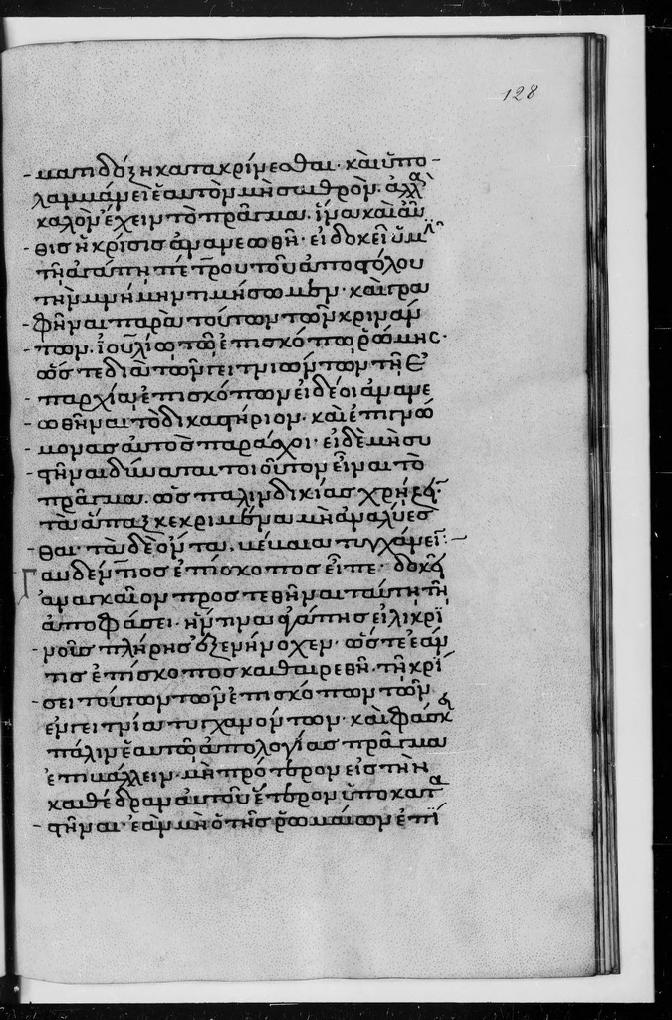 128
ματι δόξη κατακρίνεσθαι· καὶ ὑπο
λαμβάνει ἑαυτὸν μὴ σαθρὸν· ἀλλὰ
καλὸν ἔχειν τὸ πρᾶγμα. ἵνα καὶ αὖ
θις ἡ κρίσις ἀνανεωθῆ· εἰ δοκεῖ ὑμῶν
τῆ ἀγάπη πέτρου τοῦ ἀποστόλου
τὴν μνήμην τιμήσωμεν· καὶ γρα
φῆναι παρὰ τούτων τῶν κρινάν
των. ἰουλίω τῶ ἐπισκόπω ῥώμης·
ὥστε διὰ τῶν γειτνιώντων τῆ ἐ
παρχία ἐπισκόπων εἰ δέοι ἀνανε
ωθῆναι τὸ δικαστήριον· καὶ ἐπιγνώ
μονας αὐτὸς παράσχοι· εἰ δὲ μὴ συ
στῆναι δύναται τοιοῦτον εἶναι τὸ
πρᾶγμα. ὡς παλινδικίας χρήζειν·
τὰ ἅπαξ κεκριμένα μὴ ἀναλύεσ
θαι· τὰ δὲ ὄντα. βέβαια τυγχάνει:~
Γαυδέντιος ἐπίσκοπος εἶπε· δοκεῖ
ἀναγκαῖον προστεθῆναι ταύτη τῆ
ἀποφάσει· ἥντινα ἀγάπης εἰλικρι
νοῦς πλήρης ἐξενήνοχεν· ὥστε ἐάν
τις ἐπίσκοπος καθαιρεθῆ· τῆ κρί
σει τούτων τῶν ἐπισκόπων τῶν
ἐν γειτνία τυγχανόντων· καὶ φάσκη
πάλιν ἑαυτῶ ἀπολογίας πρᾶγμα
ἐπιβάλλειν· μὴ πρότερον εἰς τὴν
καθέδραν αὐτοῦ ἕτερον ὑποκατα
στῆναι· ἐὰν μὴ ὁ τῆς ῥωμαίων ἐπί